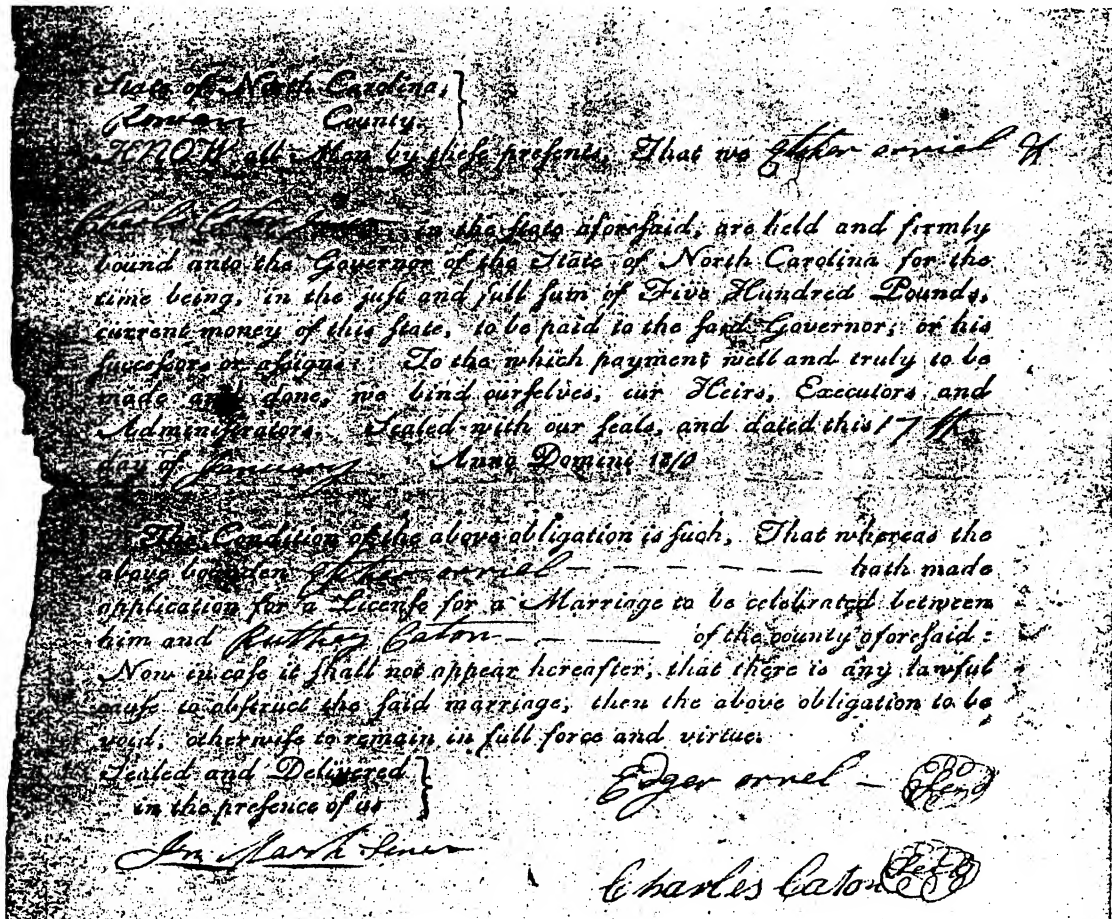 State of North Carolina,
Rowan County.
KNOW all Men by theſe preſents, That we orriel &
Charls Caton, in the ſtate aforeſaid, are held and firmly
bound unto the Governor of the State of North Carolina for the
time being, in the juſt and full ſum of Five Hundred Pounds,
current money of this ſtate, to be paid to the ſaid Governor, or his
ſucceſſors or aſsigns: To the which payment well and truly to be
made and done, we bind ourſelves, our Heirs, Executors and
Adminiſtrators. Sealed with our ſeals, and dated this 17th
day of January Anno Domini 1810
The Condition of the above obligation is ſuch, That whereas the
above bounden orriel — — — — — — — hath made
application for a Licenſe for a Marriage to be celebrated between
him and Ruthey Caton — — — — of the county aforeſaid:
Now in caſe it ſhall not appear hereafter, that there is any lawful
cauſe to obſtruct the ſaid marriage, then the above obligation to be
void, otherwiſe to remain in full force and virtue.
Sealed and Delivered
in the preſence of us
Edger orrel — Seal
Jn March Sener
Charles Caton Seal